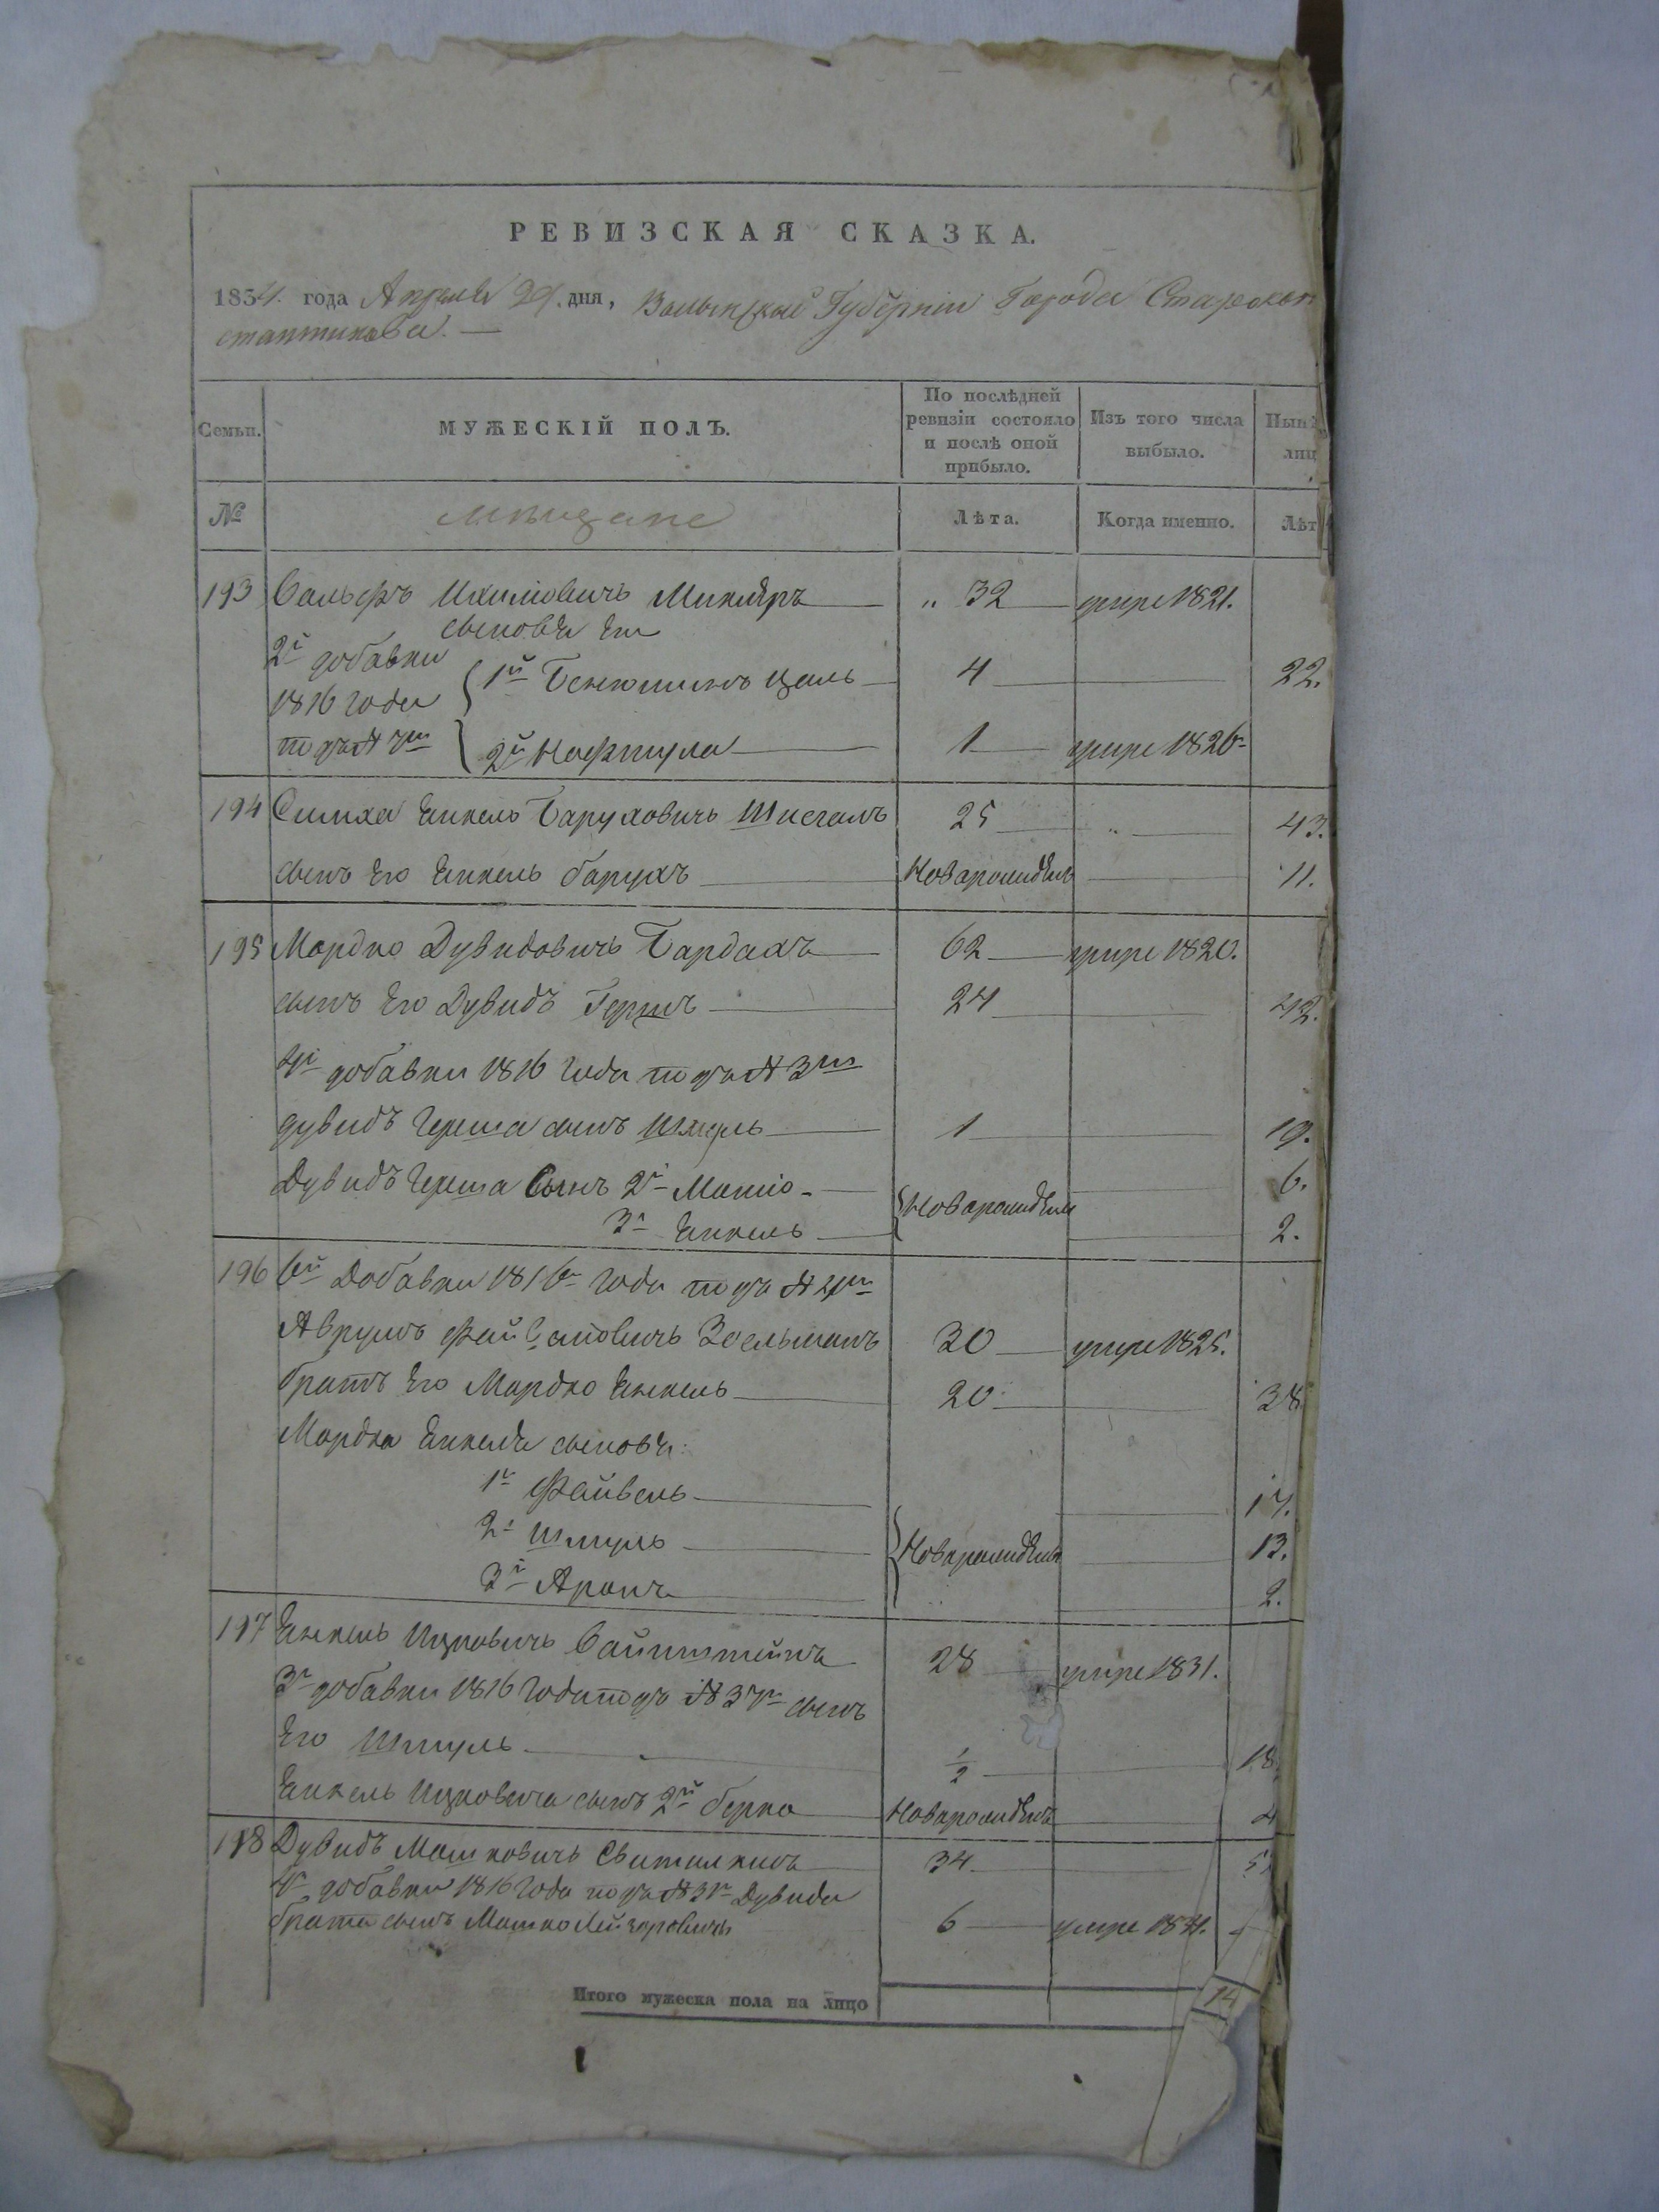 РЕВИЗСКАЯ СКАЗКА.
1834. года Апреля 29. дня, Волынской Губерніи Города Старокон
стантинова. —
Семьи.
МУЖЕСКІЙ ПОЛЪ.
По послѣдней ревизіи состояло и послѣ оной прибыло.
Изъ того числа выбыло.
Нынѣ лиц
№
мѣщане
Лѣта.
Когда именно.
Лѣт
193 32 умре 1821.
сыновья Его
2й добавки
1816 Года { 1й 4 22.
подъ N 2й Нафтула 1 умре 1826
194 Симха Янкель Баруховичъ 25 43.
сынъ Его Янкель Барухъ Новорожденъ 11.
195 Мордко Дувидовичъ Бардахъ 62 умре 1820.
сынъ Его Дувидъ Гершъ 24 42.
4й добавки 1816 Года подъ N 3м
Дувидъ Герша сынъ Шмуль 1 19.
Дувидъ Герша Сынъ 2й 6.
3й Янкель { Новорождены 2.
196 6й Добавки 1816 Года подъ N
Аврумъ Зоельманъ 30 умре 1825.
братъ Его Мордко Янкель 20 38
Мордка Янкеля сыновья:
1й Файвель 17.
2й Шмуль { Новорождены 13.
3й Аронъ 2.
197 Янкель Ицковичъ Вайнштейнъ 28 умре 1831.
3й добавки 1816 Года подъ N сынъ
Его Шмуль ½ 18
Янкель Ицковича сынъ 2й Берко Новорожденъ 4
198 Дувидъ Мошковичъ 34 5
4й добавки 1816 Года подъ N Дувида
брата сынъ Мошко Лейзоровичъ 6 умре
Итого мужеска пола на лицо 14